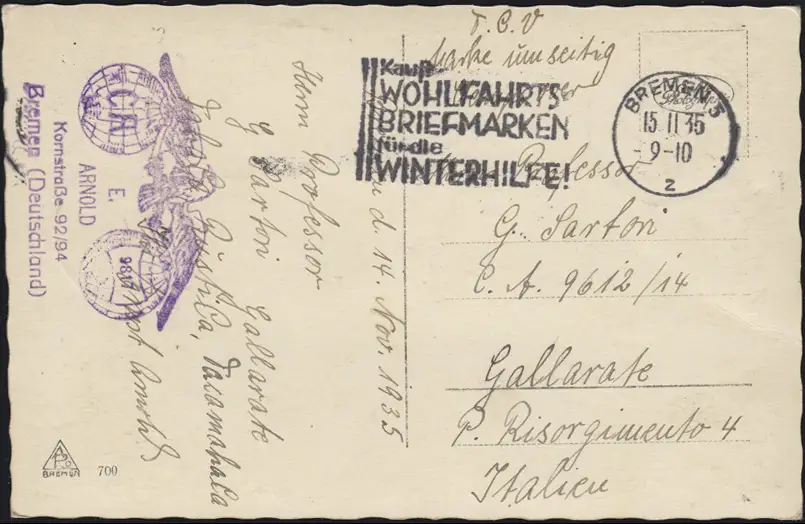 T. C. V
Marke umseitig
Kauft
WOHLFAHRTS
BRIEFMARKEN
für die
WINTERHILFE!
BREMEN 5
15 11 35
9-10
z
Professor
G. Sartori
C. A. 9612/14
Gallarate
P. Risorgimento 4
Italien
d. 14. Nov. 1935
Herrn Professor
G Sartori Gallarate
Tacamahaca
Ernst Arnold
C.C.A.
E.
ARNOLD
9817
Kornstraße 92/94
Bremen (Deutschland)
BREMEN
700